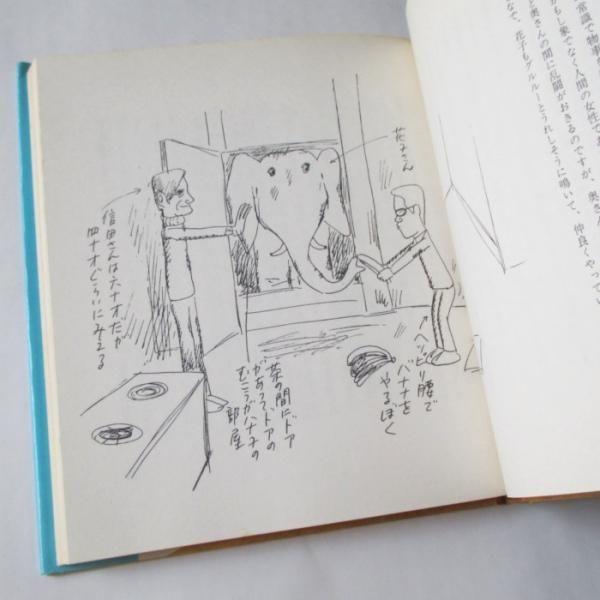 常識で物事
もし象でなく人間の女性であ
と奥さんの間に乱闘がおきるのですが、奥さん
なで、花子もグルルーとうれしそうに鳴いて、仲良くやってい
花子さん
信田さんは六十才だが
四十才ぐらいにみえる
ヘッピリ腰で
バナナを
やるぼく
茶の間にドア
があってドアの
むこうがハナ子の
部屋